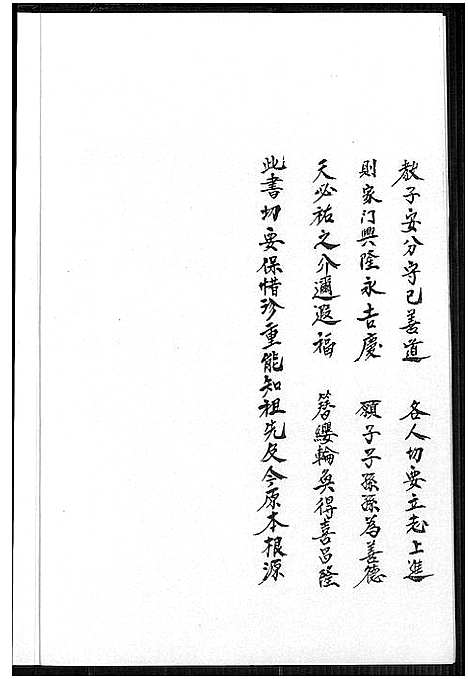 教子安分守己善道　各人切要立志上進
則家门興隆永吉慶　願子子孫孫為善德
天必祐之介邇遐福　簪纓輪奐得喜昌隆
此書切要保惜珍重能知祖先及今原本根源